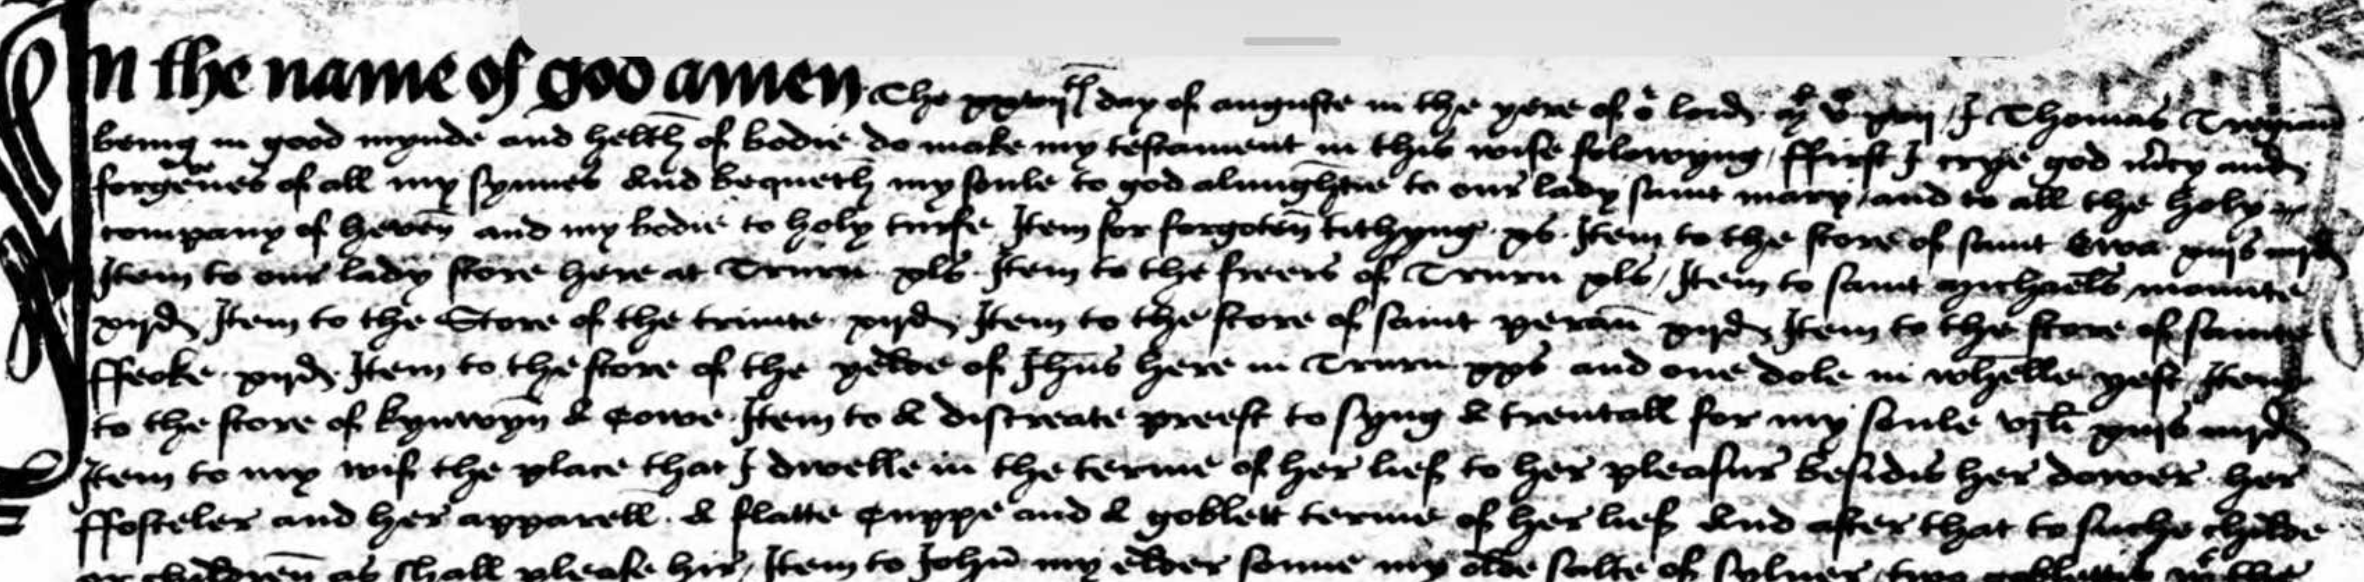 In the name of god amen The day of auguste in the yere of o lord I Thomas
being in good mynde and helth of bodie do make my testament in this wise folowyng / ffirst I crye god and
of all my synnes And bequeth my soule to god almyghtie to our lady saint mary and to all the holy
company of heven and my bodie to holy turfe Item for forgoten tithyng xs Item to the store of saint Ewa xiijs iiijd
Item to our lady store here at Truru xls Item to the freers of Truru xls / Item to saint michaells mounte
xijd Item to the Store of the trinite xijd Item to the store of saint peran xijd Item to the store of saint
ffeoke xijd Item to the store of the yelde of Jhus here in Truru xxs and one dole in whelle Item
to the store of kynwyn a cowe Item to a discreate preest to syng a trentall for my soule xiijs iiijd
Item to my wif the place that I dwelle in the terme of her lief to her pleasur besidis her dower her
ffosteler and her apparell a flatte cuppe and a goblett terme of her lief And after that to suche childe
or children as shall please hir / Item to John my elder sonne my olde salte of sylver two gobletts